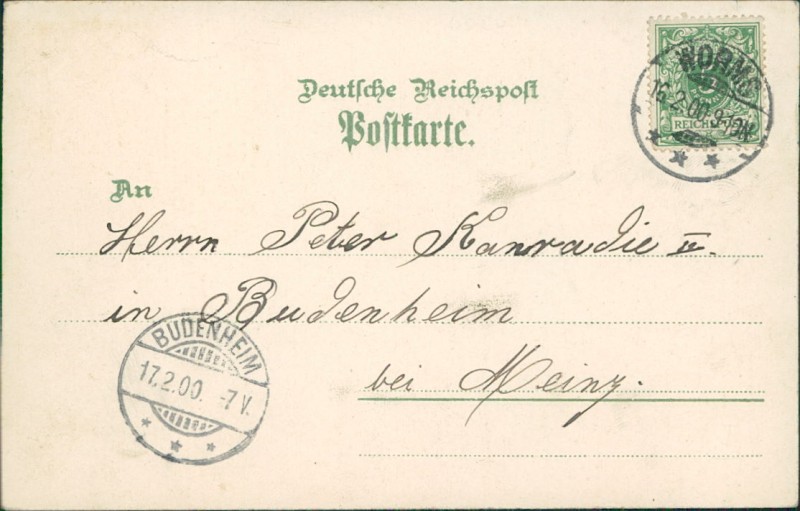 Deutsche Reichspost
Postkarte.
WORMS
16.2.00.9-10N.
5
REICHSPOST
An
Herrn Peter Kanradie II.
in Budenheim
bei Meinz.
BUDENHEIM
17.2.00. -7V.